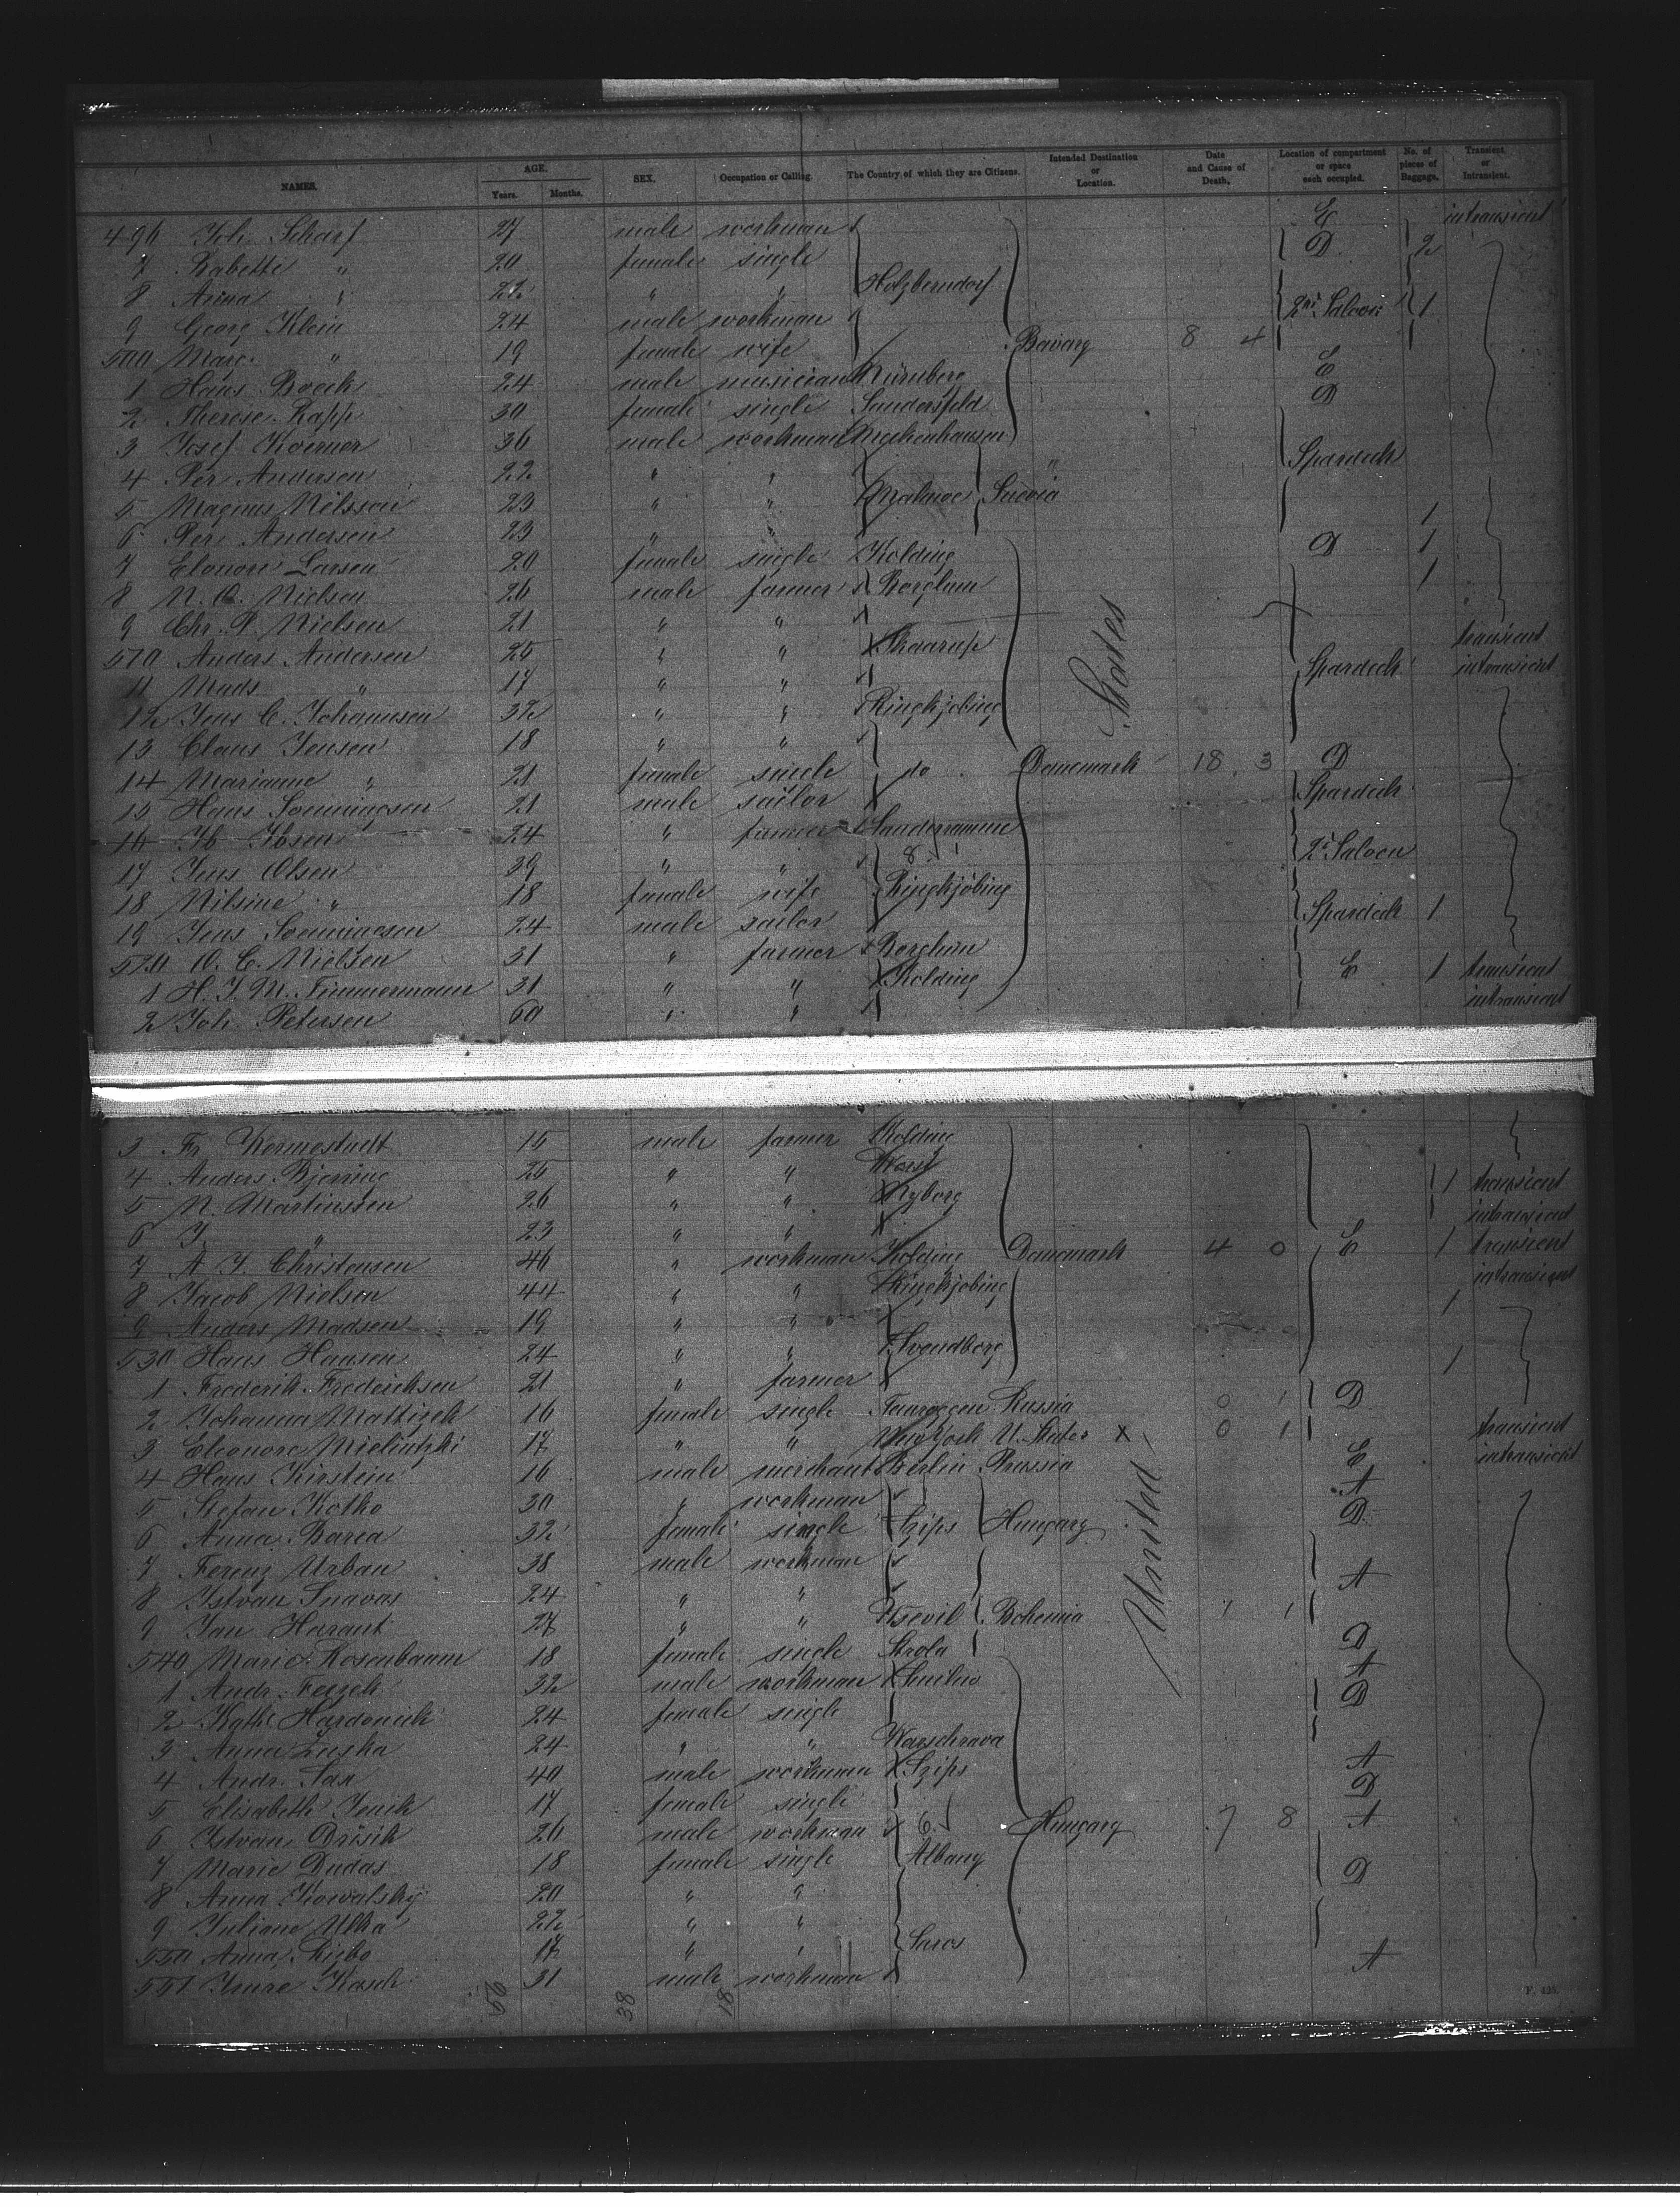 NAMES. AGE. Years. Months. SEX. Occupation or Calling. The Country of which they are Citizens. Intended Destination or Location. Date and Cause of Death. Location of compartment or space each occupied. No. of pieces of Baggage. Transient or Intransient.
496 Joh. Scharf 27 male workman E intransient
7 Babette " 20 female single D 2
8 Anna " 22 " " Holzberndorf
9 Georg Klein 24 male workman 2nd Saloon 1
500 Marg. " 19 female wife Bavary 8 4
1 Hans Boeck 24 male musician Nürnberg E
2 Therese Rapp 30 female single Sandersfeld D
3 Josef Koerner 36 male workman
4 Per Andersen 22 " " Spardeck
5 Magnus Nilsson 23 " " Malmoe Suevia
6 Per Andersen 23 " " 1
7 Elonore Larsen 20 female single Kolding D 1
8 N. O. Nielsen 26 male farmer Borglum 1
9 Chr. P. Nielsen 21 " "
510 Anders Andersen 25 " " Skaarup transient
11 Mads " 17 " " Spardeck intransient
12 Jens C. Johannsen 32 " " Ringkjobing
13 Claus Jensen 18 " "
14 Marianne " 21 female single do Danemark 18 3 D
15 Hans Sonnigsen 21 male sailor Spardeck
16 Ib Ibsen 24 " farmer
17 Jens Olsen 39 " " 8 2d Saloon
18 Nilsine " 18 female wife Ringkjöbing
19 Jens Sonnigsen 24 male sailor Spardeck 1
520 O. C. Nielsen 31 " farmer Borglum
1 H. J. M. Timmermann 31 " " Kolding E 1 transient
2 Joh. Petersen 60 " " intransient
States
3 Fr. 15 male farmer Kolding
4 Anders Bjerring 25 " " 1 transient
5 N. Martinssen 26 " " Nyborg intransient
6 J. " 23 " "
7 A. J. Christensen 46 " workman Kolding Danemark 4 0 E 1 transient
8 Jacob Nielsen 44 " " Ringkjobing intransient
9 Anders Madsen 19 " " 1
530 Hans Hansen 24 " " Svendborg 1
1 Frederik Frederichsen 21 " farmer
2 Johanna Mattizek 16 female single Tauroggen Russia 0 1 D
3 Eleonore 17 " " New York U. States X 0 1 transient
4 Hans Kirstein 16 male merchant Berlin Prussia E intransient
5 Stefan Kotko 30 " workman A
6 Anna Barea 32 female single Szips Hungary D
7 Ferenz Urban 38 male workman
8 Istvan 24 " " A
9 Jan Harant 27 " " Bohemia 1 1
540 Marie Rosenbaum 18 female single D
1 Andr. 32 male workman A
2 Kath. 24 female single D
3 Anna Zuska 24 " "
4 Andr. Sax 40 male workman Szips A
5 Elisabeth Jenik 17 female single D
6 Istvan 26 male workman 6 Hungary 7 8 A
7 Marie Dudas 18 female single Albany D
8 Anna Kowalsky 20 " "
9 Juliane Ulka 22 " "
550 Anna 17 " " Saros
551 Imre Kasch 31 male workman A
United
29 38 18
F. 425.